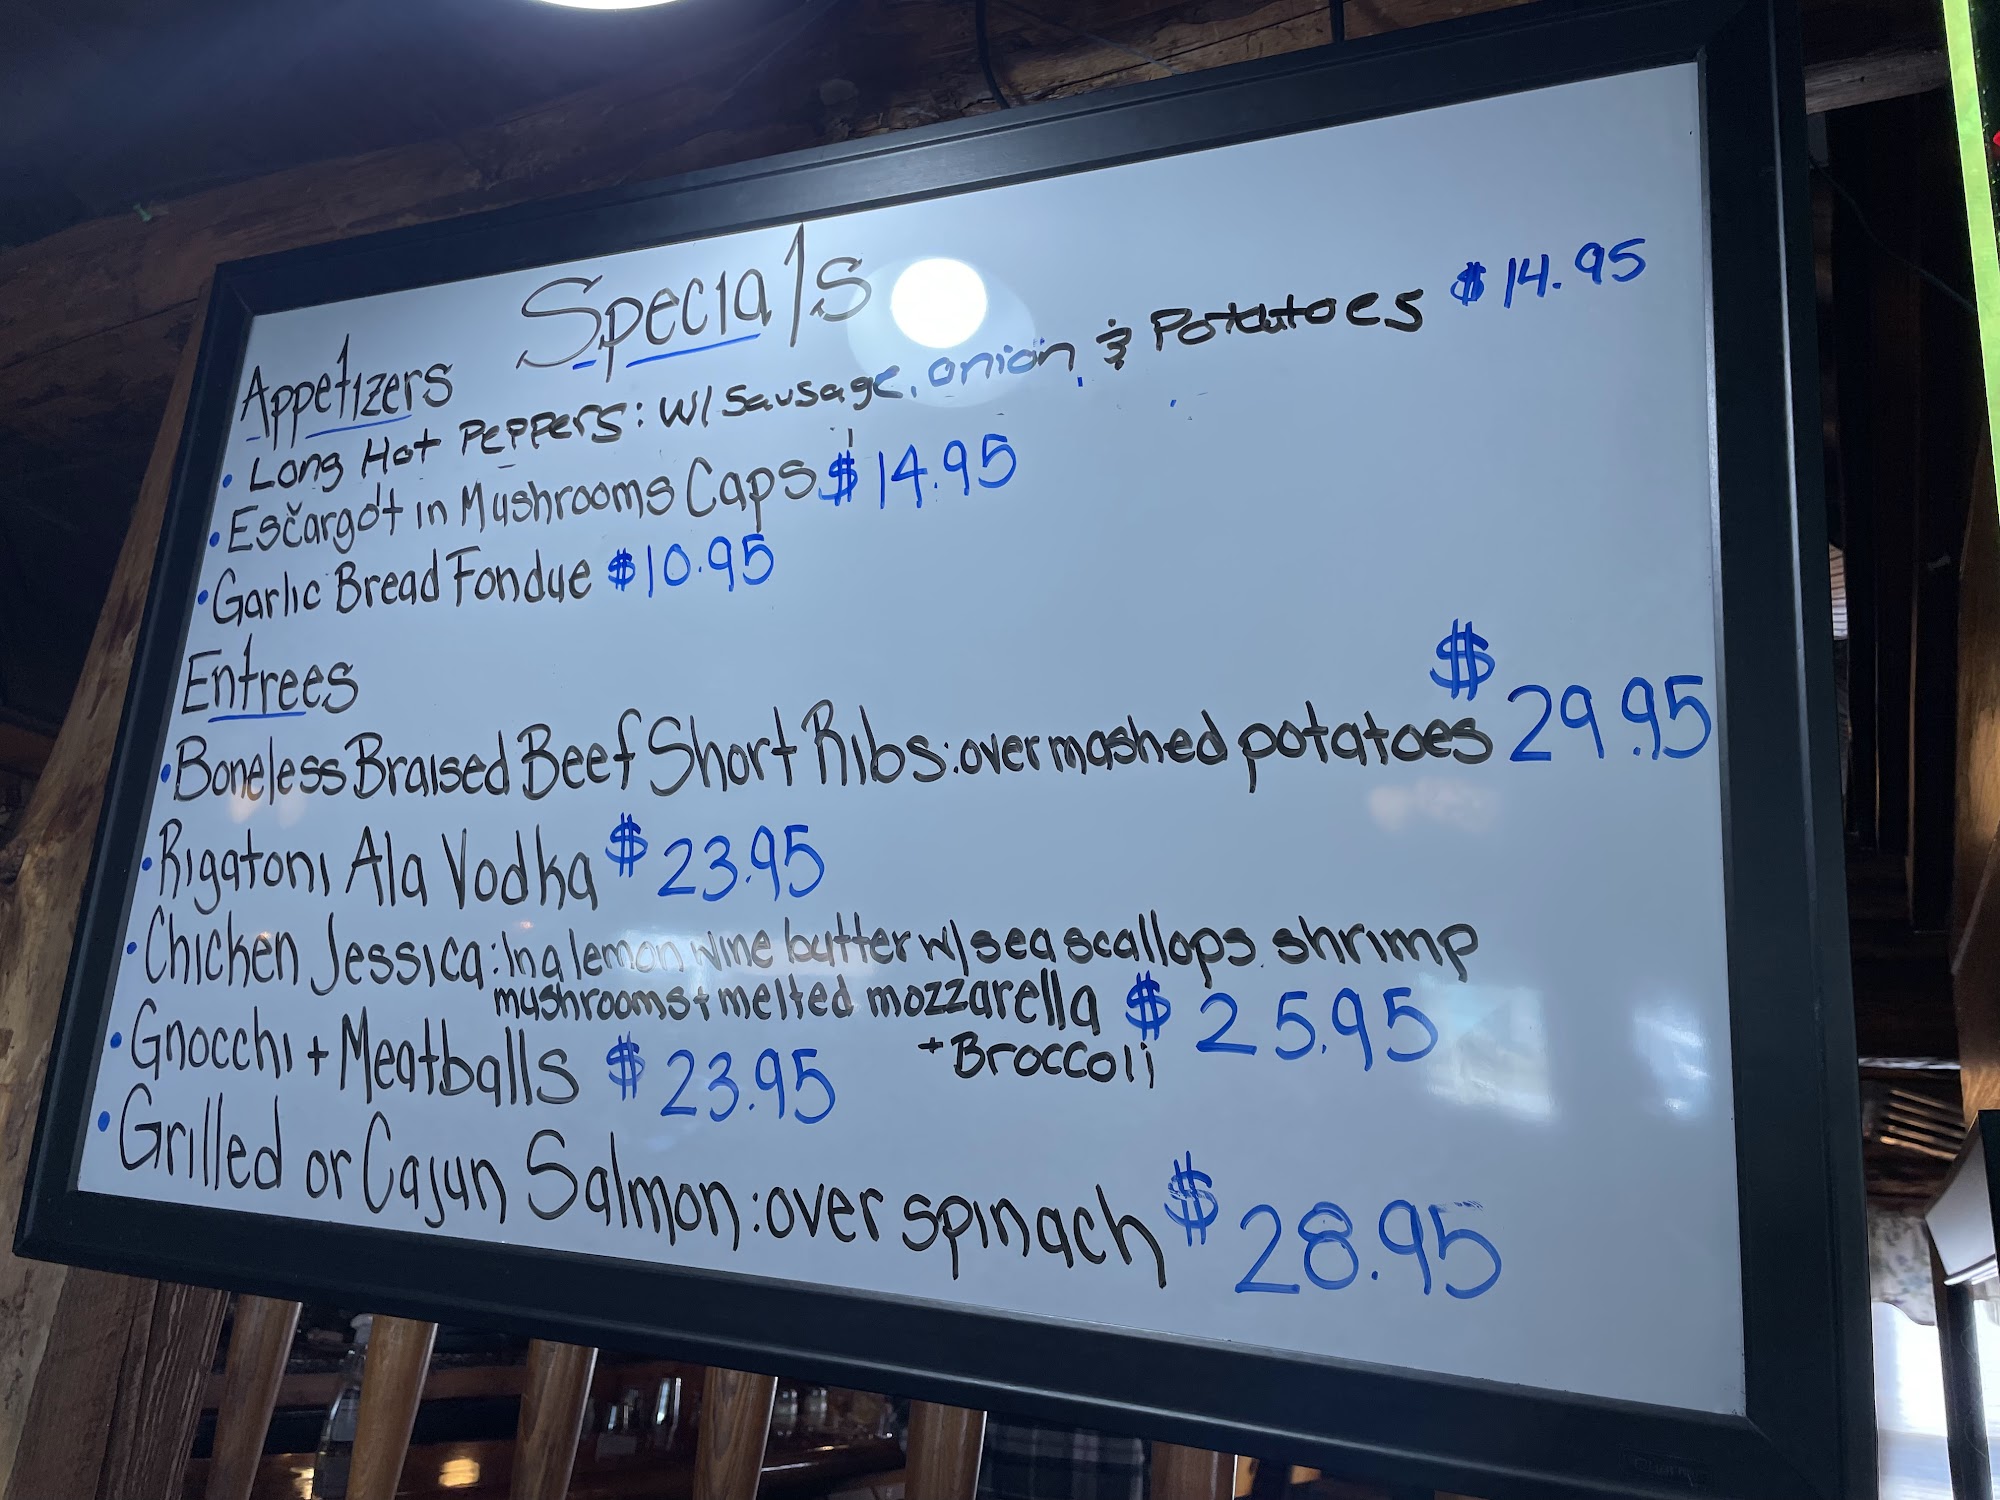 Specials
Appetizers
• Long Hot Peppers: w/ Sausage, onion, & Potatoes $14.95
• Esčargot in Mushrooms Caps $14.95
• Garlic Bread Fondue $10.95
Entrees
• Boneless Braised Beef Short Ribs: over mashed potatoes $29.95
• Rigatoni Ala Vodka $23.95
• Chicken Jessica: In a lemon wine butter w/ sea scallops, shrimp
mushrooms + melted mozzarella $25.95
+ Broccoli
• Gnocchi + Meatballs $23.95
• Grilled or Cajun Salmon: over spinach $28.95